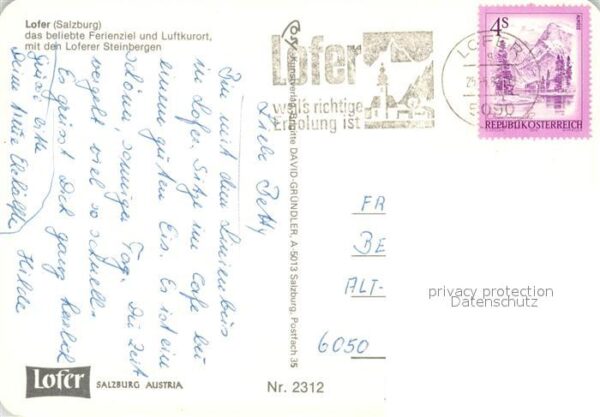 Lofer (Salzburg)
das beliebte Ferienziel und Luftkurort,
mit den Loferer Steinbergen
Lofer
weil's richtige
Erholung ist
LOFER
5090
4s
ALMSEE
REPUBLIK ÖSTERREICH
Liebe Betty
Bin mit dem Linienbus
in Lofer. Sitze im Cafe bei
einem guten Eis. Es ist ein
schöner, sonniger Tag. Die Zeit
vergeht viel so schnell.
Es grüsst Dich ganz herzlich
Hilde
Kunstverlag Brigitte DAVID-GRÜNDLER, A-5013 Salzburg, Postfach 35
FR
BE
ALT-
6050
privacy protection
Datenschutz
Lofer
SALZBURG AUSTRIA
Nr. 2312